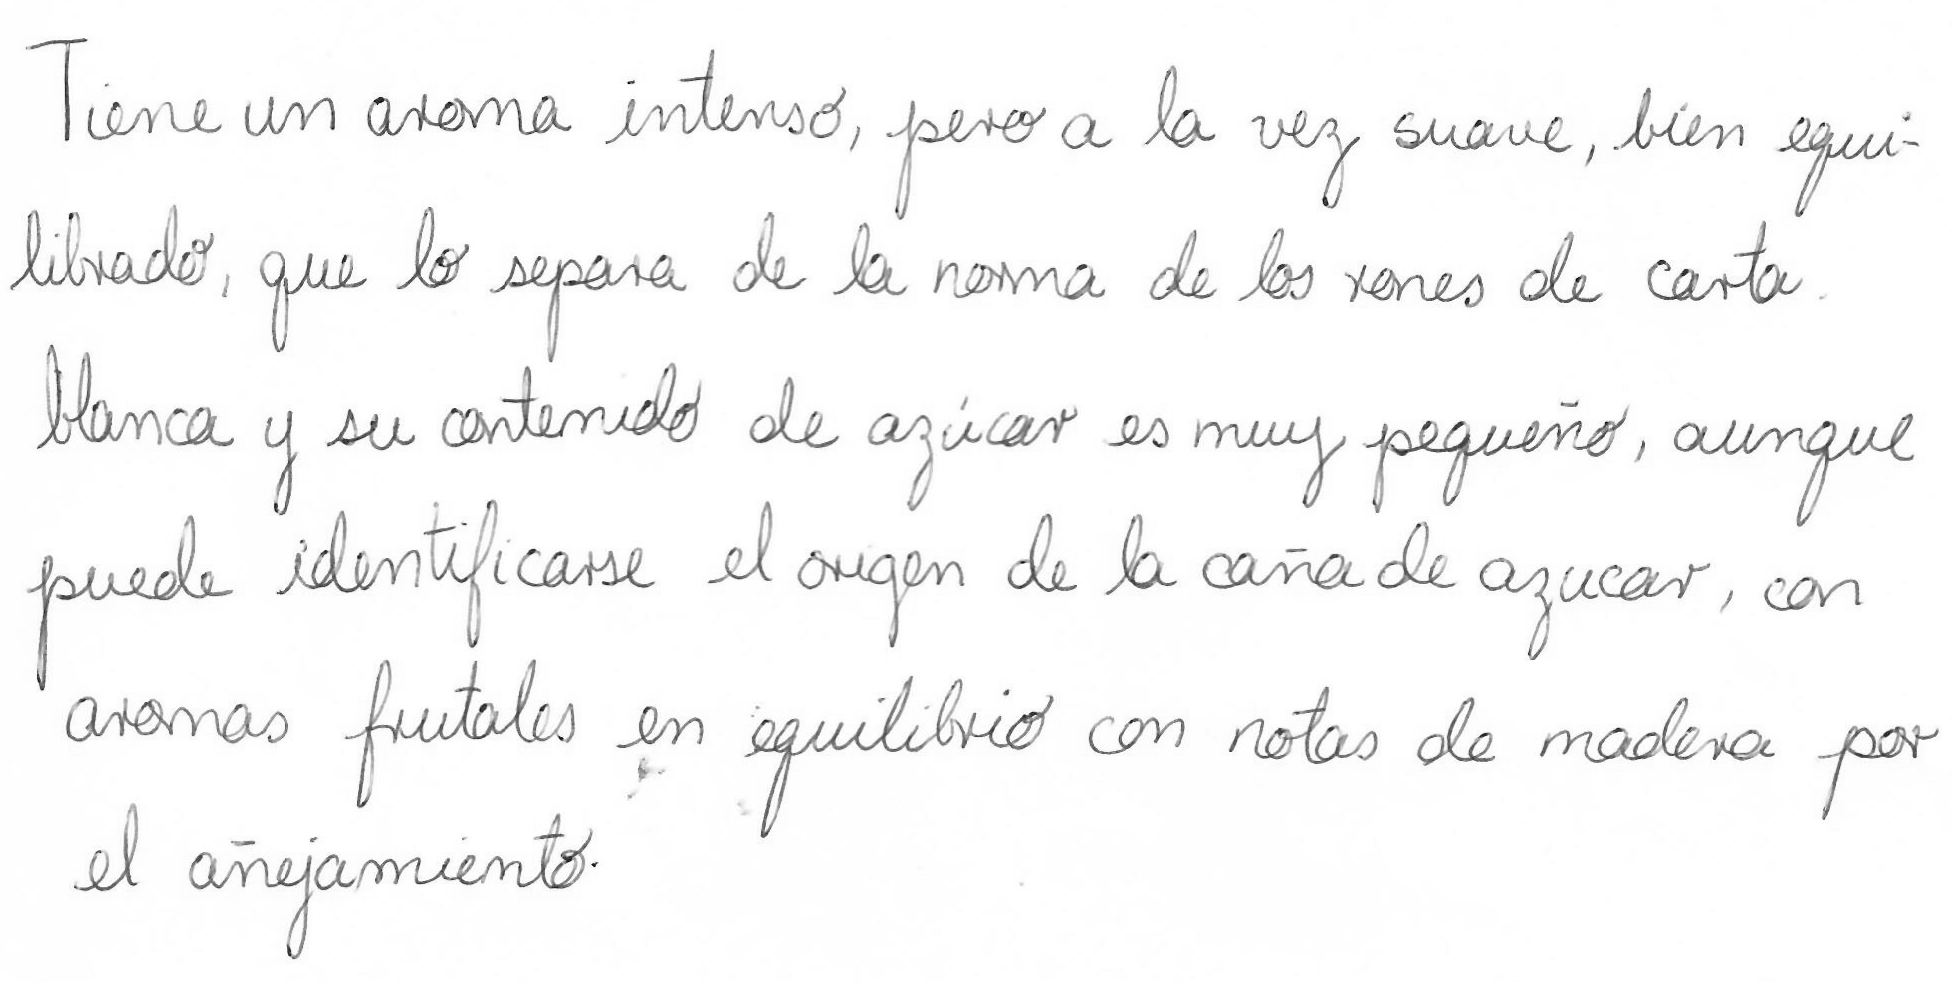 Tiene un aroma intenso, pero a la vez suave, bien equi-
librado, que lo separa de la norma de los rones de carta
blanca y su contenido de azúcar es muy pequeño, aunque
puede identificarse el origen de la caña de azucar, con
aromas frutales en equilibrio con notas de madera por
el añejamiento.